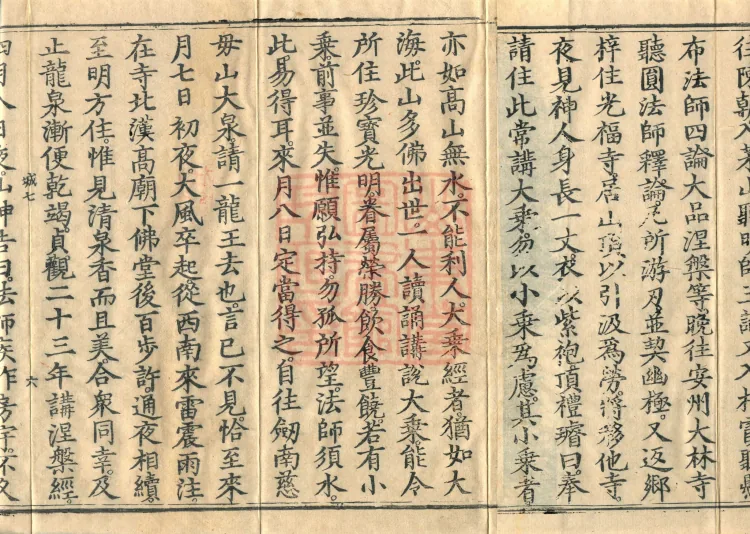 往隋朝入茅山聽明師三論又入栖霞聽懸
布法師四論大品涅槃等。晚往安州大林寺
聽圓法師釋論。凡所游刃並契幽極。又返鄉
梓住光福寺。居山頂以引汲為勞。將移他寺。
夜見神人身長一丈。衣以紫袍頂禮璿曰。奉
請住此常講大乘。勿以小乘為慮。其小乘者
亦如高山無水。不能利人。大乘經者。猶如大
海。此山多佛出世。一人讀誦講說大乘。能令
所住珍寶光明眷屬榮勝飲食豐饒。若有小
乘。前事並失。惟願弘持。勿孤所望。法師須水。
此易得耳。來月八日定當得之。自往劒南慈
毋山大泉。請一龍王去也。言已不見。恰至來
月七日初夜。大風卒起。從西南來雷震雨注。
在寺北漢高廟下佛堂後百步許。通夜相續。
至明方住。惟見清泉香而且美。合衆同幸。及
止龍泉漸便乾竭。貞觀二十三年講涅槃經。
城七 六
四月八日夜。山神告曰。法師疾作房宇。不久